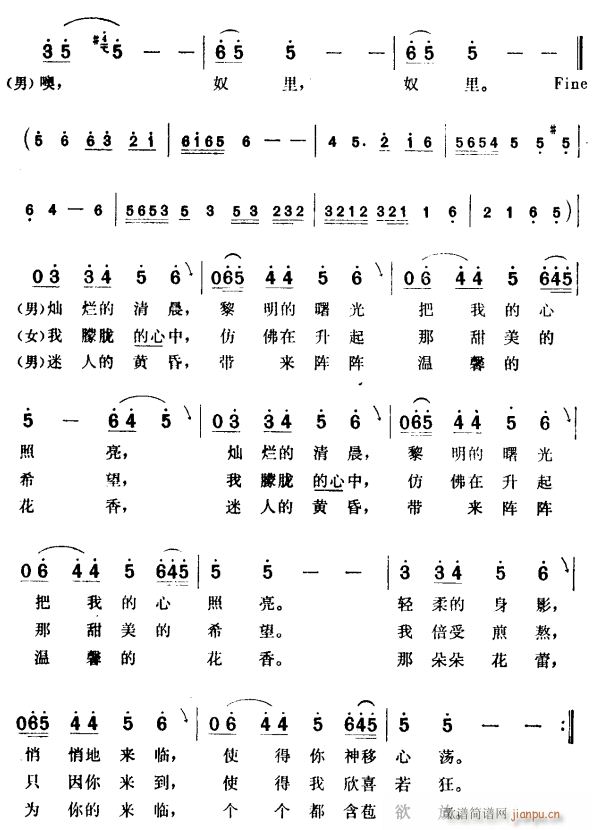 3 5 #4 5 — — | 6 5 5 — — | 6 5 5 — — ‖
(男)噢, 奴 里, 奴 里。 Fine
(5 6 6 3 2 1 | 6 1 6 5 6 — — | 4 5. 2 1 6 | 5 6 5 4 5 5 #5 |
6 4 — 6 | 5 6 5 3 5 3 5 3 2 3 2 | 3 2 1 2 3 2 1 1 6 | 2 1 6 5) |
0 3 3 4 5 6 | 0 6 5 4 4 5 6 | 0 6 4 4 5 6 4 5 |
(男)灿 烂的 清 晨, 黎 明的 曙 光 把 我 的 心
(女)我 朦胧 的心 中, 仿 佛在 升 起 那 甜 美 的
(男)迷 人的 黄 昏, 带 来 阵 阵 温 馨 的
5 — 6 4 5 | 0 3 3 4 5 6 | 0 6 5 4 4 5 6 |
照 亮, 灿 烂的 清 晨, 黎 明的 曙 光
希 望, 我 朦胧 的心 中, 仿 佛在 升 起
花 香, 迷 人的 黄 昏, 带 来 阵 阵
0 6 4 4 5 6 4 5 | 5 5 — — | 3 3 4 5 6 |
把 我 的 心 照 亮。 轻 柔的 身 影,
那 甜 美 的 希 望。 我 倍受 煎 熬,
温 馨 的 花 香。 那 朵朵 花 蕾,
0 6 5 4 4 5 6 | 0 6 4 4 5 6 4 5 | 5 5 — — :‖
悄 悄地 来 临, 使 得 你 神移 心 荡。
只 因你 来 到, 使 得 我 欣喜 若 狂。
为 你的 来 临, 个 个 都 含苞 欲 放
歌谱简谱网 jianpu.cn